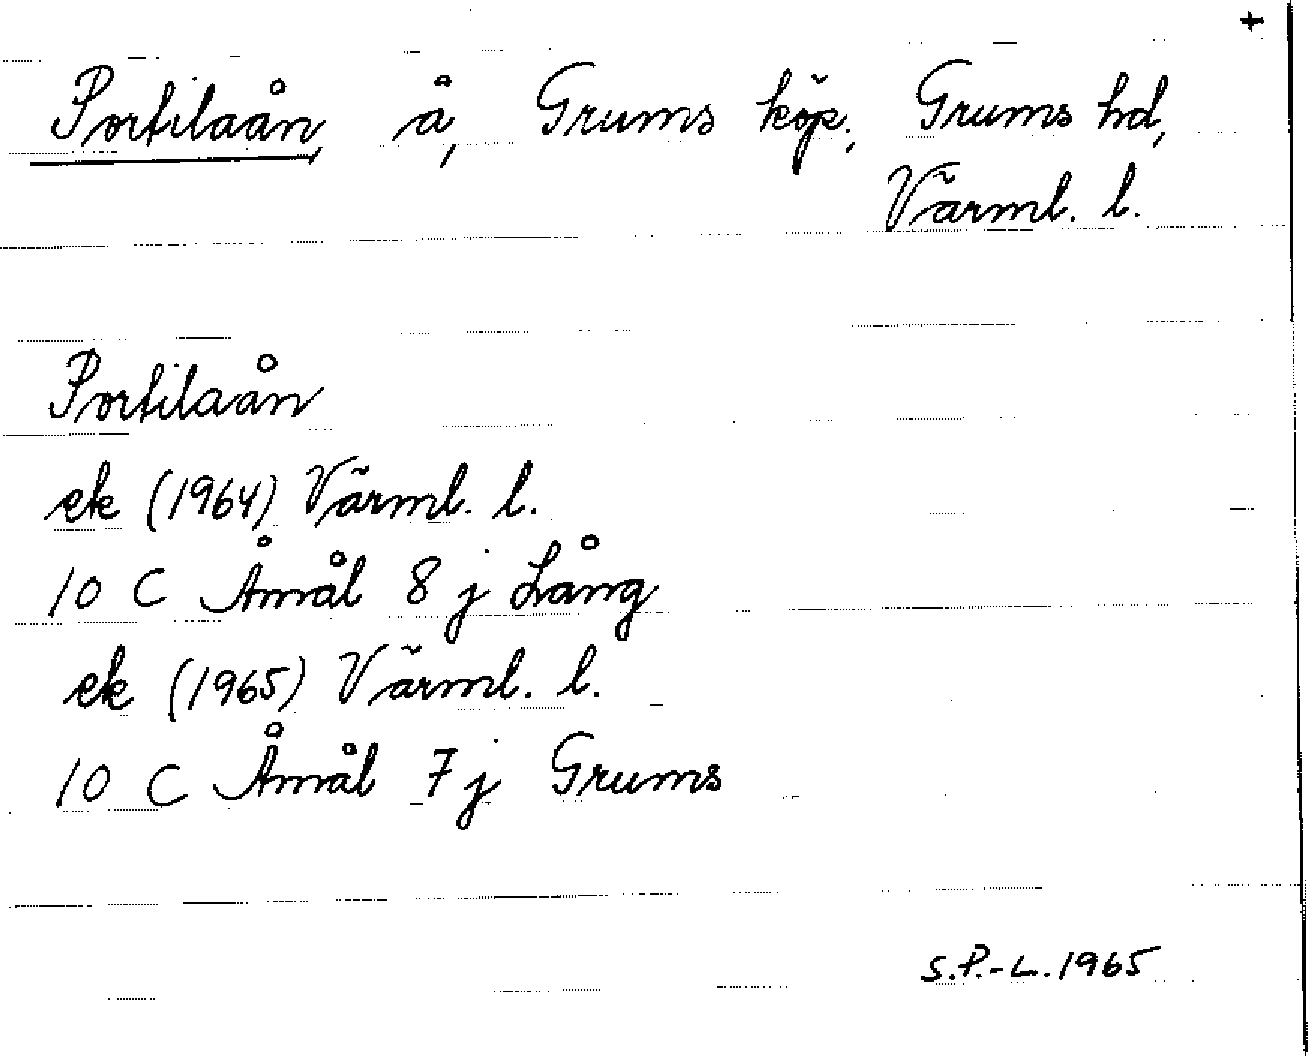 +
Portilaån, å, Grums köp., Grums hd,
Värml. l.
Portilaån
ek (1964) Värml. l.
10 C Åmål 8 j Lång
ek (1965) Värml. l.
10 C Åmål 7 j Grums
S.P.-L. 1965